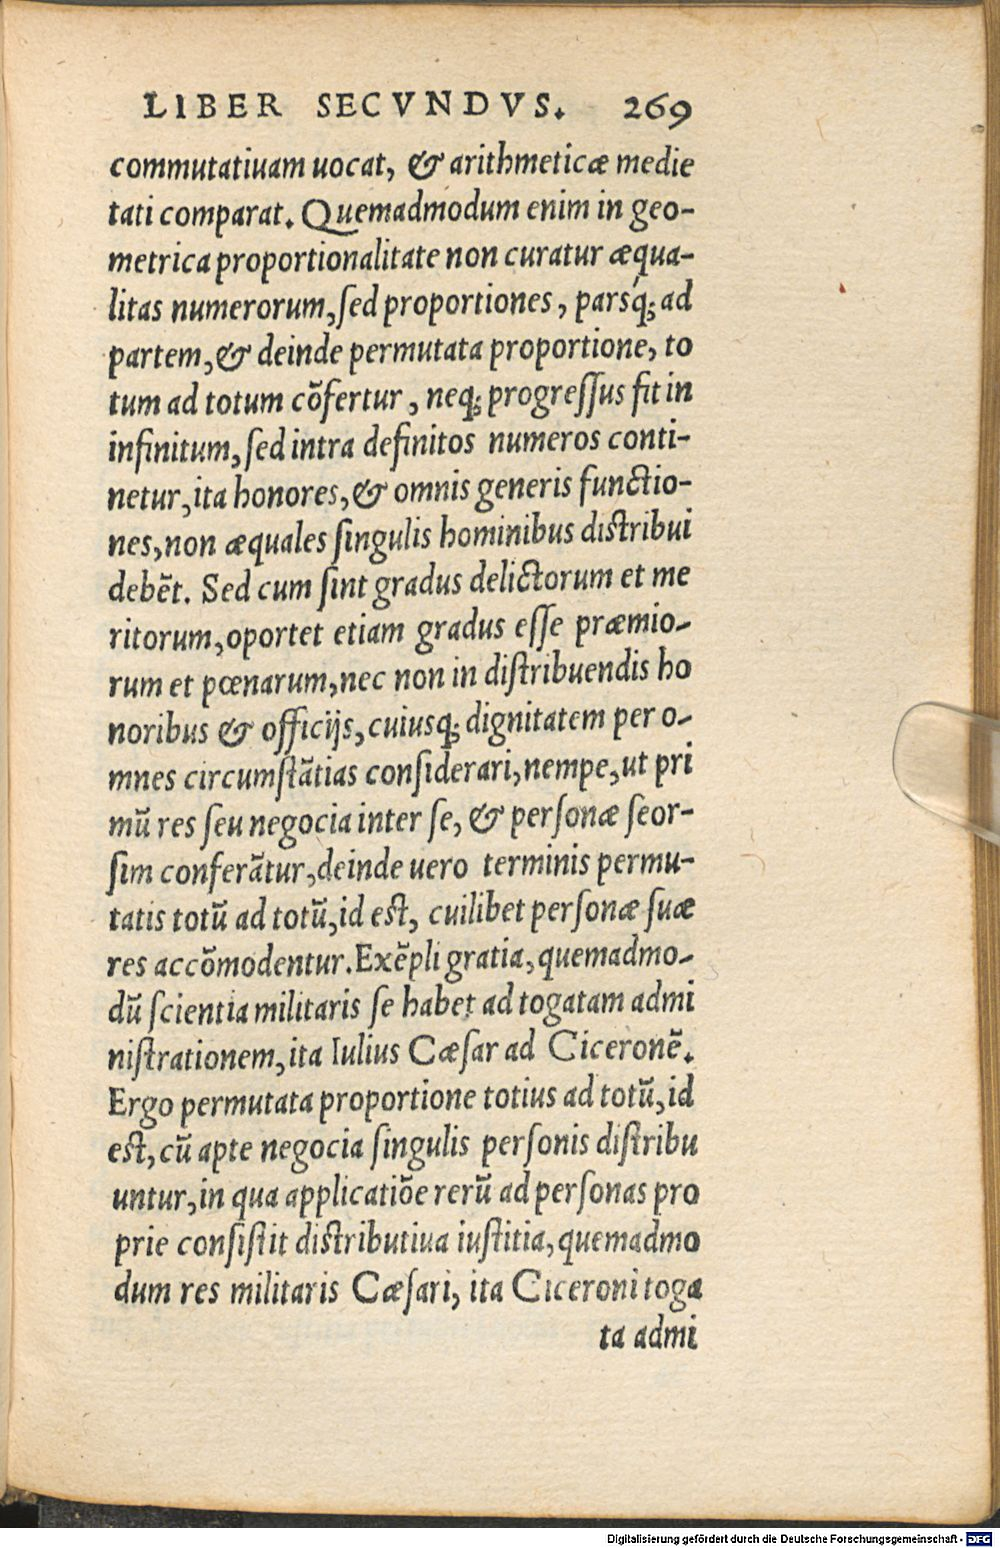 LIBER SECVNDVS. 269
commutatiuam uocat, & arithmeticæ medie
tati comparat. Quemadmodum enim in geo-
metrica proportionalitate non curatur æqua-
litas numerorum, ſed proportiones, parsq́; ad
partem, & deinde permutata proportione, to
tum ad totum cõfertur, neq; progreſſus fit in
infinitum, ſed intra definitos numeros conti-
netur, ita honores, & omnis generis functio-
nes, non æquales ſingulis hominibus diſtribui
debẽt. Sed cum ſint gradus delictorum et me
ritorum, oportet etiam gradus eſſe præmio-
rum et pœnarum, nec non in diſtribuendis ho
noribus & officijs, cuiusq; dignitatem per o-
mnes circumſtãtias conſiderari, nempe, ut pri
mũ res ſeu negocia inter ſe, & perſonæ ſeor-
ſim conferãtur, deinde uero terminis permu-
tatis totũ ad totũ, id eſt, cuilibet perſonæ ſuæ
res accõmodentur. Exẽpli gratia, quemadmo-
dũ ſcientia militaris ſe habet ad togatam admi
niſtrationem, ita Iulius Cæſar ad Ciceronẽ.
Ergo permutata proportione totius ad totũ, id
eſt, cũ apte negocia ſingulis perſonis diſtribu
untur, in qua applicatiõe rerũ ad perſonas pro
prie conſiſtit diſtributiua iuſtitia, quemadmo
dum res militaris Cæſari, ita Ciceroni toga
ta admi
Digitalisierung gefördert durch die Deutsche Forschungsgemeinschaft - DFG